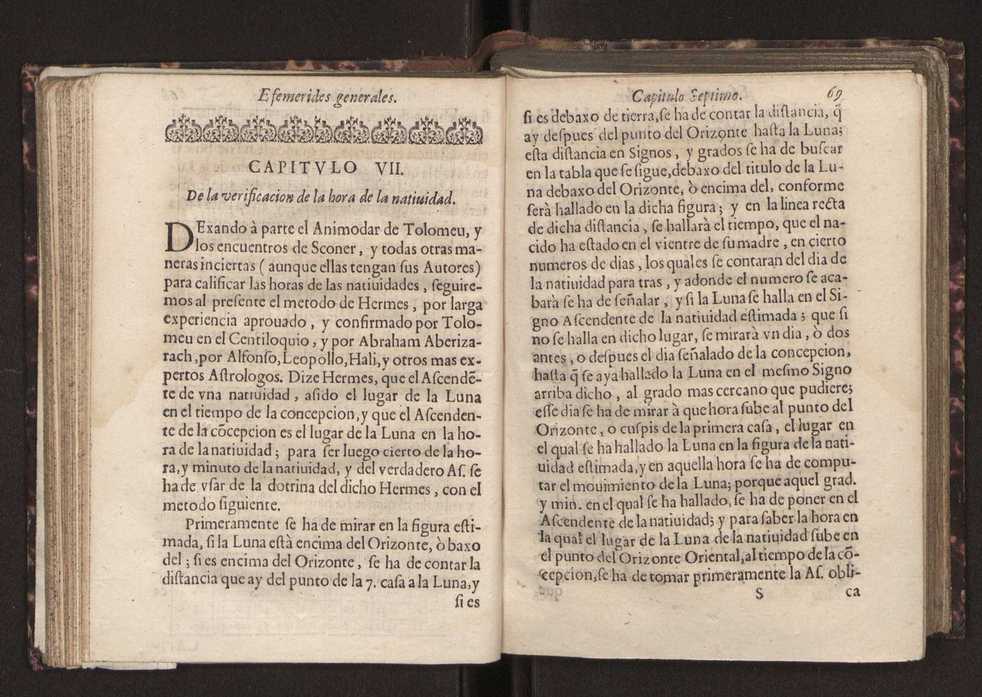 Efemerides generales.
CAPITVLO VII.
De la verificacion de la hora de la natiuidad.
DExando à parte el Animodar de Tolomeu, y
los encuentros de Sconer, y todas otras ma-
neras inciertas ( aunque ellas tengan sus Autores)
para calificar las horas de las natiuidades, seguire-
mos al presente el metodo de Hermes, por larga
experiencia aprouado, y confirmado por Tolo-
meu en el Centiloquio, y por Abraham Aberiza-
rach, por Alfonso, Leopollo, Hali, y otros mas ex-
pertos Astrologos. Dize Hermes, que el Ascendẽ-
te de vna natiuidad, asido el lugar de la Luna
en el tiempo de la concepcion, y que el Ascenden-
te de la cõcepcion es el lugar de la Luna en la ho-
ra de la natiuidad; para ser luego cierto de la ho-
ra, y minuto de la natiuidad, y del verdadero As. se
ha de vsar de la dotrina del dicho Hermes, con el
metodo siguiente.
Primeramente se ha de mirar en la figura esti-
mada, si la Luna està encima del Orizonte, ò baxo
del; si es encima del Orizonte, se ha de contar la
distancia que ay del punto de la 7. casa a la Luna, y
si es
Capitulo Septimo. 69
si es debaxo de tierra, se ha de contar la distancia, q̃
ay despues del punto del Orizonte hasta la Luna;
esta distancia en Signos, y grados se ha de buscar
en la tabla que se sigue, debaxo del titulo de la Lu-
na debaxo del Orizonte, ò encima del, conforme
serà hallado en la dicha figura; y en la linea recta
de dicha distancia, se hallarà el tiempo, que el na-
cido ha estado en el vientre de su madre, en cierto
numeros de dias, los quales se contaran del dia de
la natiuidad para tras, y adonde el numero se aca-
barà se ha de señalar, y si la Luna se halla en el Si-
gno Ascendente de la natiuidad estimada; que si
no se halla en dicho lugar, se mirarà vn dia, ò dos
antes, o despues el dia señalado de la concepcion,
hasta q̃ se aya hallado la Luna en el mesmo Signo
arriba dicho, al grado mas cercano que pudiere;
esse dia se ha de mirar à que hora sube al punto del
Orizonte, o cuspis de la primera casa, el lugar en
el qual se ha hallado la Luna en la figura de la nati-
uidad estimada, y en aquella hora se ha de compu-
tar el mouimiento de la Luna; porque aquel grad.
y min. en el qual se ha hallado, se ha de poner en el
Ascendente de la natiuidad; y para saber la hora en
la qual el lugar de la Luna de la natiuidad sube en
el punto del Orizonte Oriental, al tiempo de la cõ-
cepcion, se ha de tomar primeramente la As. obli-
S ca